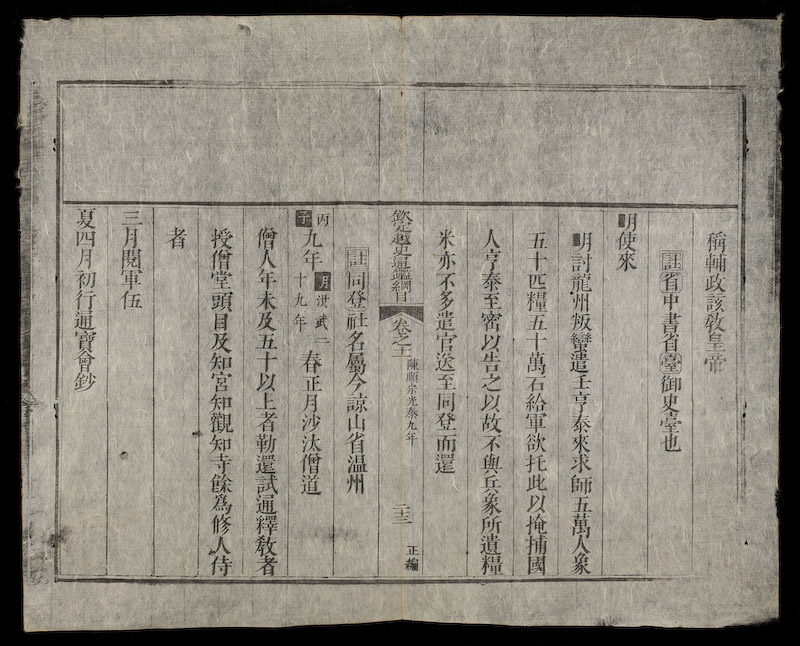 稱輔政該教皇帝
註省中書省臺御史臺也
明使來
明討龍州叛蠻遣王亨泰來求師五萬人象
五十匹糧五十萬石給軍欲托此以掩捕國
人亨泰至密以告之以故不與兵象所遺糧
米亦不多遣官送至同登而還
欽定越史通鑑綱目 卷之十一 陳順宗光泰九年 二十三 正編
註同登社名屬今諒山省温州
丙子九年 明洪武二十九年 春正月沙汰僧道
僧人年未及五十以上者勒還試通釋教者
授僧堂頭目及知宮知觀知寺餘為修人侍
者
三月閱軍伍
夏四月初行通寶會鈔